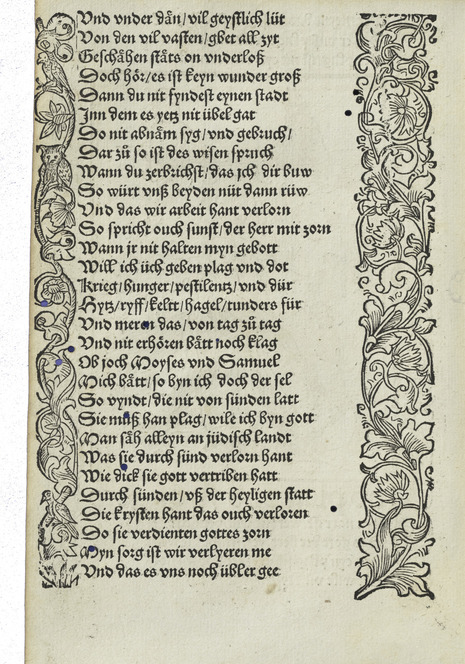 Vnd vnder dān/vil geystlich lüt
Von den vil vasten/gbet all zyt
Geschāhen stāts on vnderloß
Doch hör/es ist keyn wunder groß
Dann du nit fyndest eynen stadt
Jnn dem es yetz nit übel gat
Do nit abnām syg/vnd gebruch/
Dar zů so ist des wisen spruch
Wann du zerbrichst/das jch dir buw
So würt vnß beyden nüt dann rüw
Vnd das wir arbeit hant verlorn
So spricht ouch sunst/der herr mit zorn
Wann jr nit halten myn gebott
Will ich üch geben plag vnd dot
Krieg/hunger/pestilentz/vnd dür
Hytz/ryff/keltt/hagel/tunders für
Vnd meren das/von tag zů tag
Vnd nit erhören bātt noch klag
Ob joch Moyses vnd Samuel
Mich bātt/so byn ich doch der sel
So vyndt/die nit von sünden latt
Sie můß han plag/wile ich byn gott
Man sāh alleyn an jüdisch landt
Was sie durch sünd verlorn hant
Wie dick sie gott vertriben hatt
Durch sünden/vß der heyligen statt
Die krysten hant das ouch verloren
Do sie verdienten gottes zorn
Myn sorg ist wir verlyeren me
Vnd das es vns noch übler gee